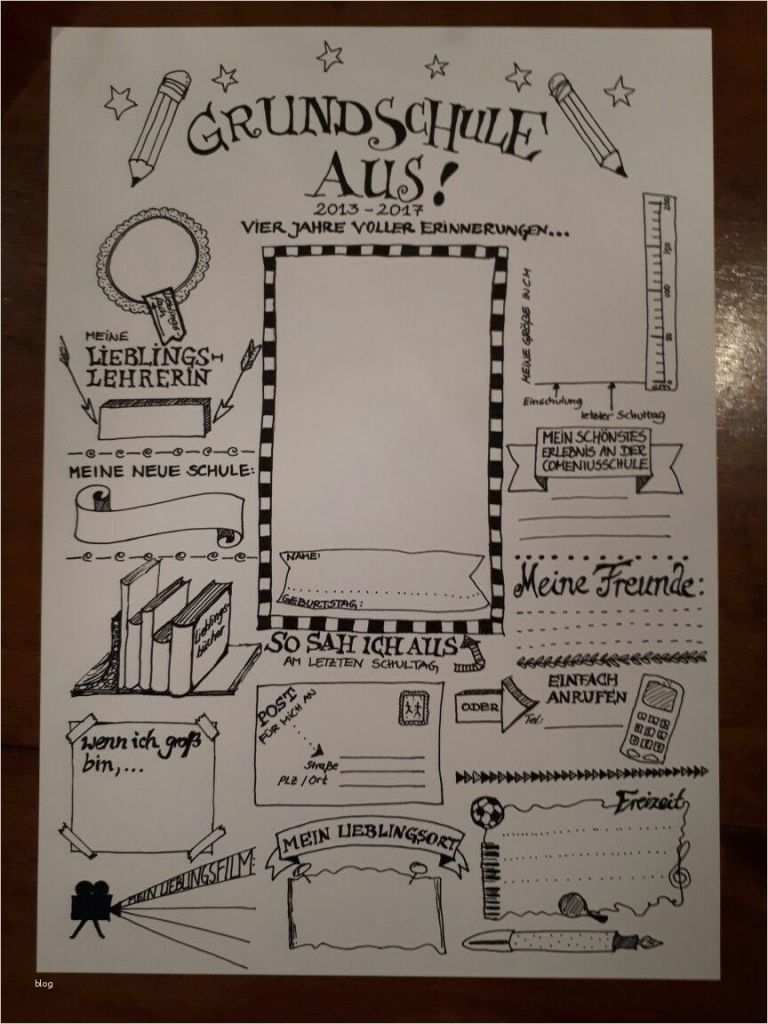 GRUNDSCHULE
AUS!
2013-2017
VIER JAHRE VOLLER ERINNERUNGEN...
MEINE
LIEBLINGS-
LEHRERIN
MEINE NEUE SCHULE:
Lieblings-
bücher
wenn ich groß
bin,...
MEIN LIEBLINGSFILM:
NAME:
GEBURTSTAG:
SO SAH ICH AUS
AM LETZTEN SCHULTAG
POST
FÜR MICH AN
Straße
PLZ/Ort
MEIN LIEBLINGSORT
MEINE GRÖßE IN CM
200
150
100
50
0
Einschulung
letzter Schultag
MEIN SCHÖNSTES
ERLEBNIS AN DER
COMENIUSSCHULE
Meine Freunde:
ODER
EINFACH
ANRUFEN
Tel:
Freizeit
blog